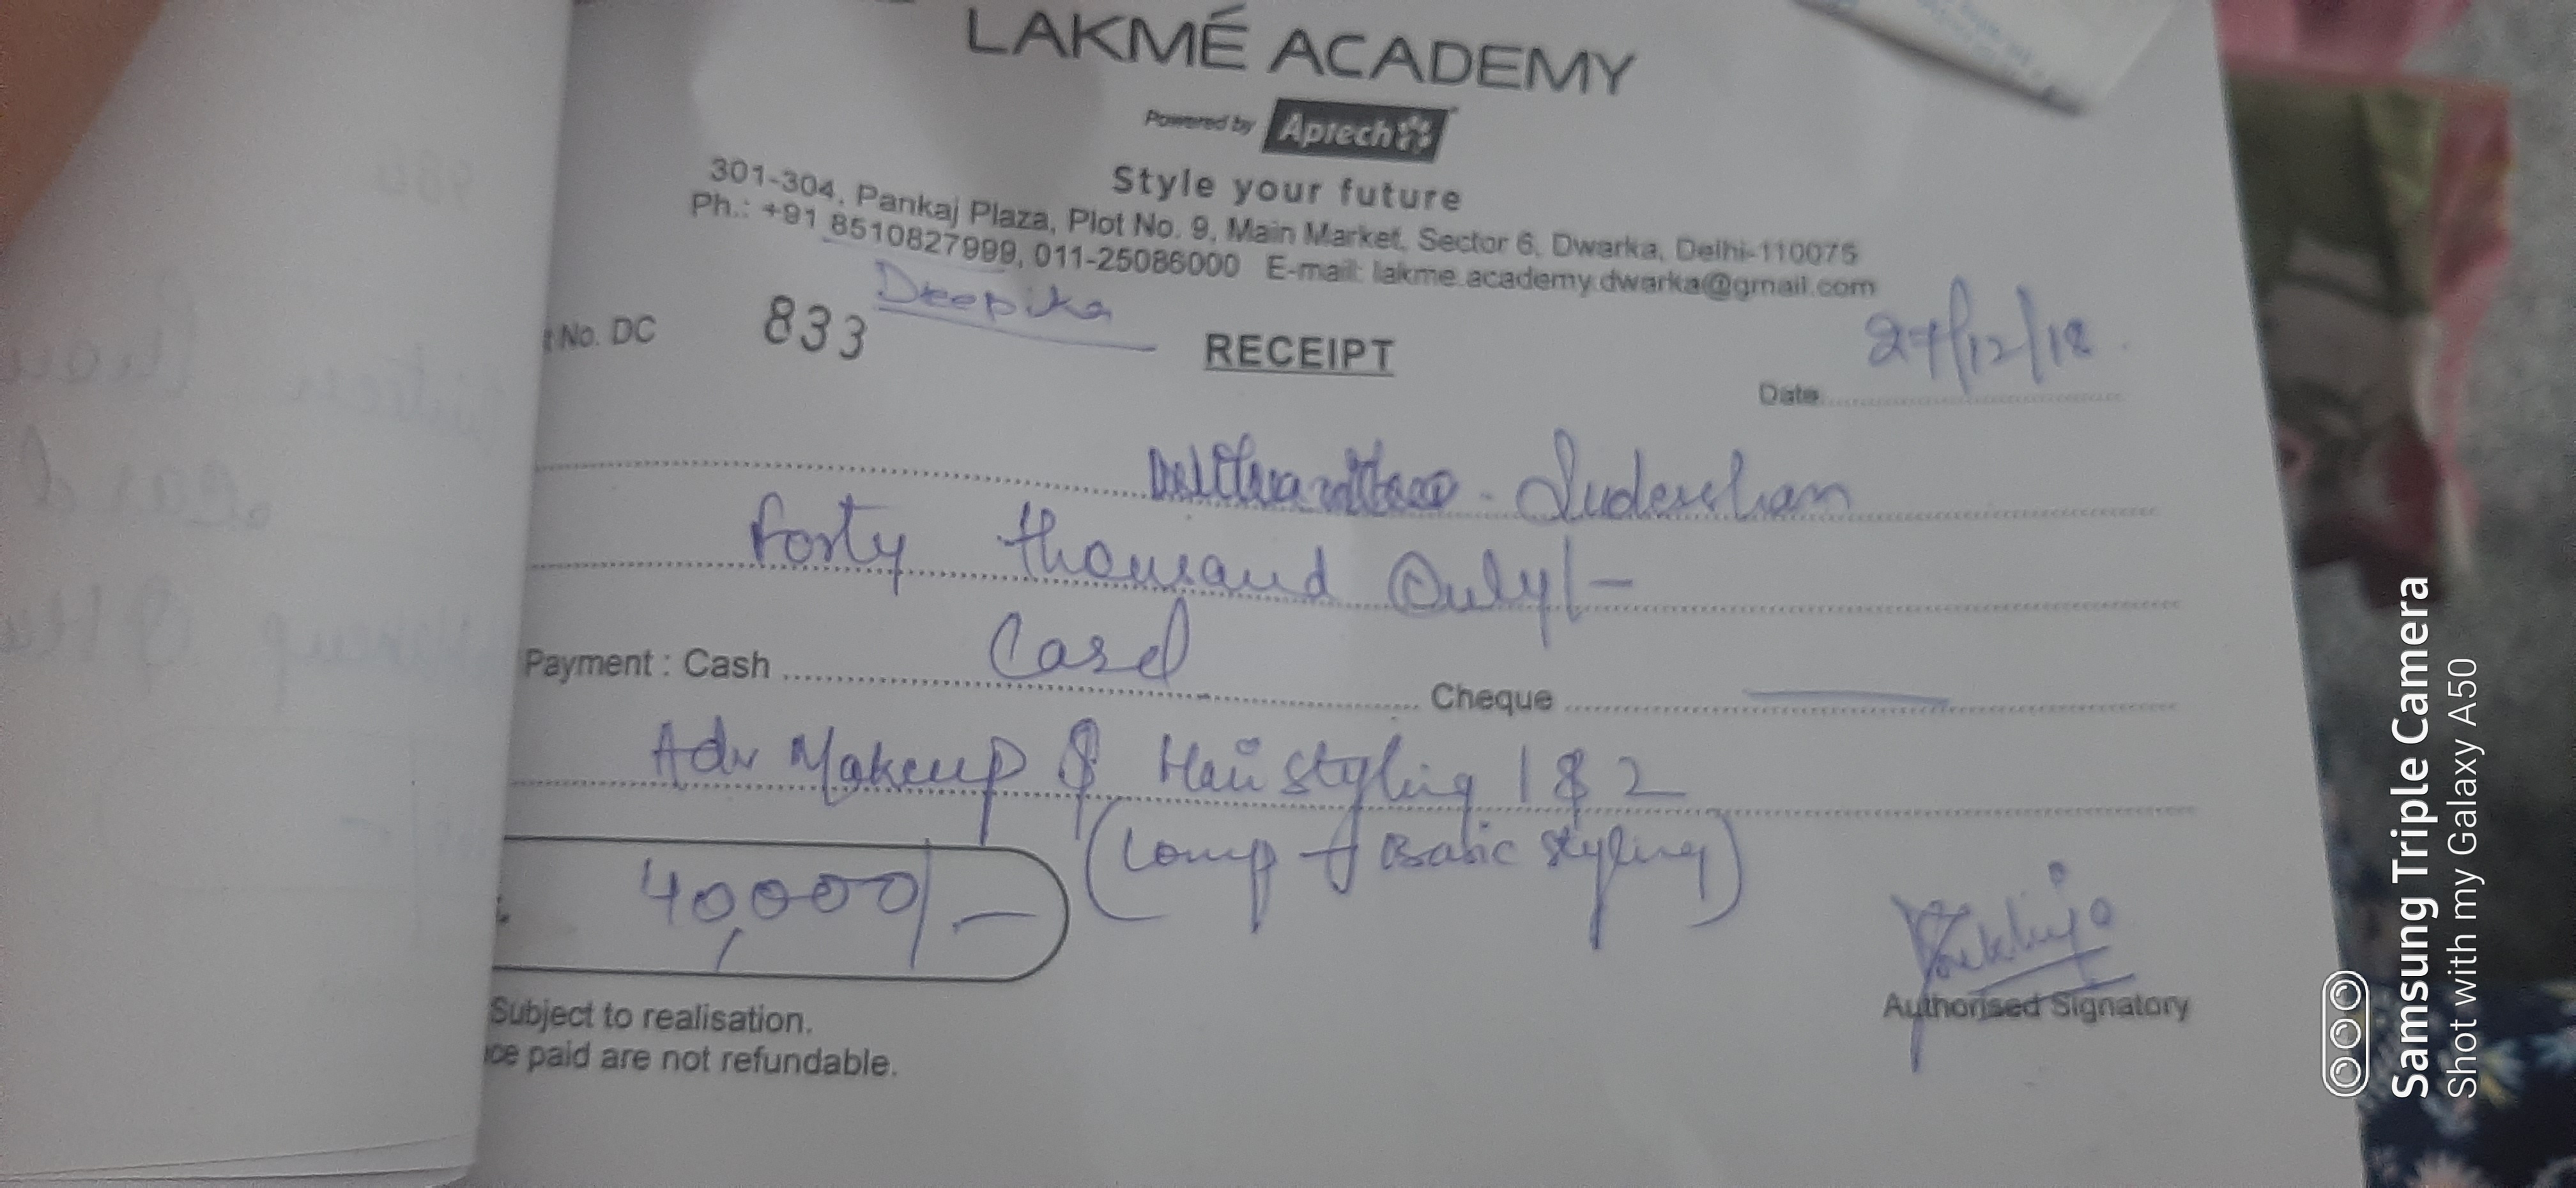 LAKMÉ ACADEMY
Powered by Aptech
Style your future
301-304, Pankaj Plaza, Plot No. 9, Main Market, Sector 6, Dwarka, Delhi-110075
Ph.: +91 8510827999, 011-25086000 E-mail: lakme.academy.dwarka@gmail.com
Deepika
No. DC 833 RECEIPT
Date
Sudershan
Forty thousand Only/-
Payment : Cash Card Cheque
Adv Makeup & Hair styling 1 & 2
40,000/- (Comp of Basic styling)
Subject to realisation.
paid are not refundable.
Authorised Signatory
Samsung Triple Camera
Shot with my Galaxy A50